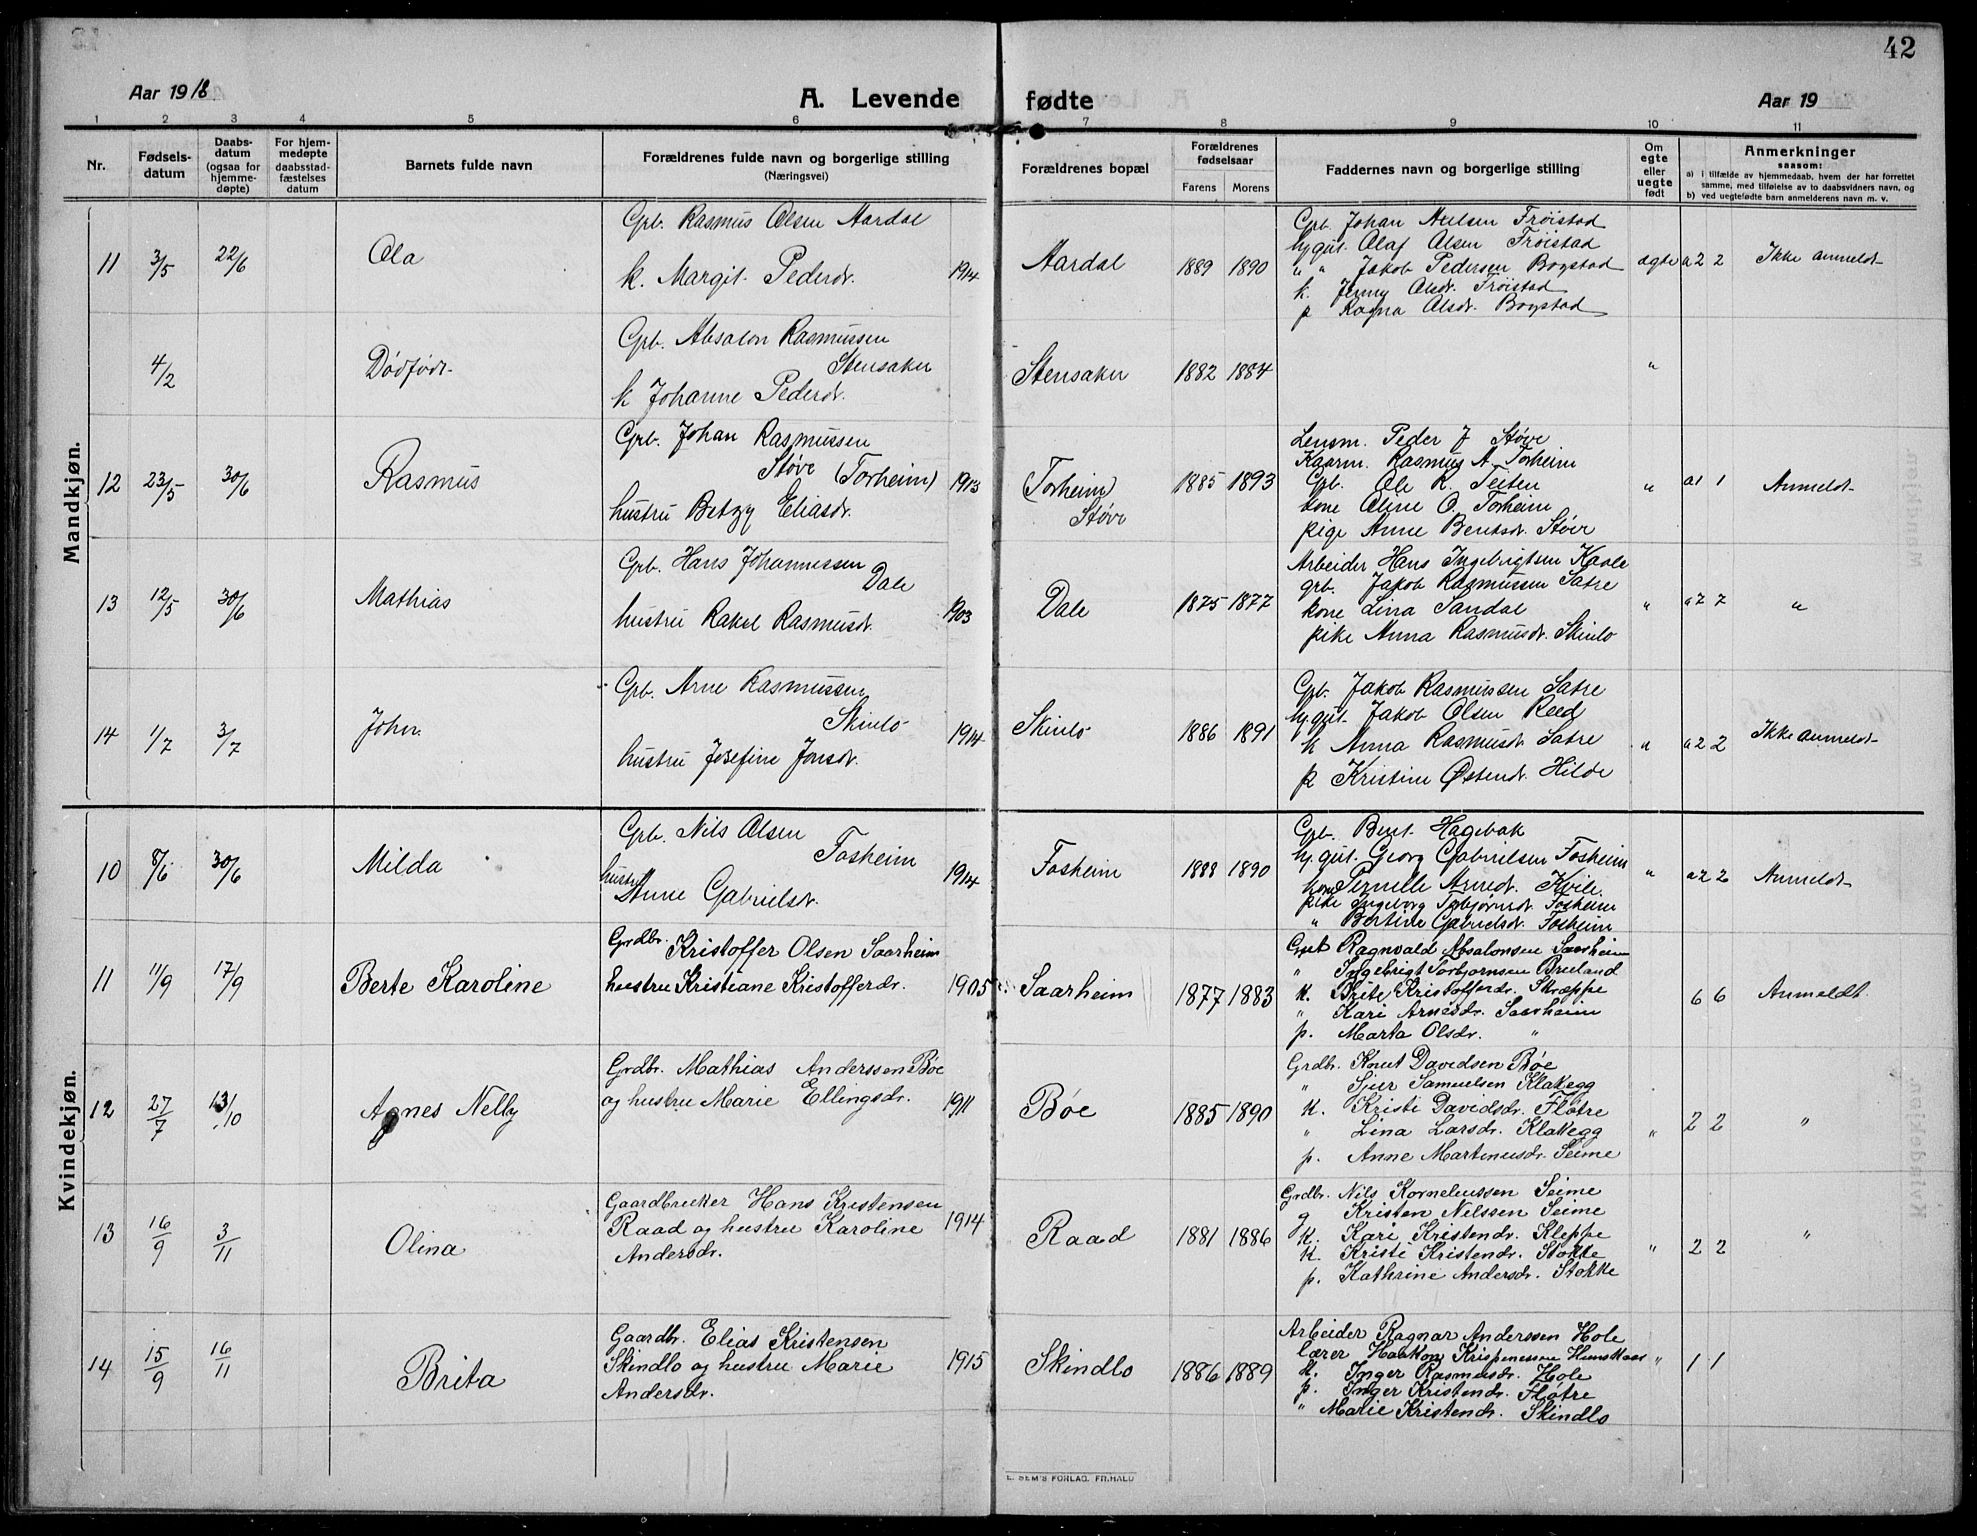 42
Aar 1918
A. Levende fødte
Aar 19
1 2 3 4 5 6 7 8 9 10 11
Nr.
Fødsels-
datum
Daabs-
datum
(ogsaa for
hjemme-
døpte)
For hjem-
medøpte
daabsstad-
fæstelses
datum
Barnets fulde navn
Forældrenes fulde navn og borgerlige stilling
(Næringsvei)
Forældrenes bopæl
Forældrenes
fødselsaar
Farens Morens
Faddernes navn og borgerlige stilling
Om
egte
eller
uegte
født
Anmerkninger
saasom:
a) i tilfælde av hjemmedaab, hvem der har forrettet
samme, med tilføielse av to daabsvidners navn, og
b) ved uegtefødte barn anmelderens navn m. v.
Mandkjøn.
11 3/5 22/6 Ola
Grb. Rasmus Olsen Aardal
k. Margit Pedersdr. 1914
Aardal 1889 1890
Grb. Johan Frøistad
Olaf Olsen Frøistad
" " Jakob Pedersen Bogstad
k. Jenny Olsdr. Frøistad
p Ragna Olsdr. Bogstad
ægte a 2 2 Ikke anmeldt
4/2 Dødfødt
Grb. Absalon Rasmussen
Stensaker
k Johanne Pedersdr.
Stensaker 1882 1884 "
12 23/5 30/6 Rasmus
Grb. Johan Rasmussen
Støve (Torheim) 1913
hustru Betzy Eliasdr.
(Torheim)
Støve
1885 1893
Lensm. Peder J Støve
Kaarm. Rasmus A. Torheim
Grb. Ole R. Teiten
kone Oline O. Torheim
pige Anne Bentsdr. Støve
" a1 1 Anmeldt
13 12/5 30/6 Mathias
Grb. Hans Johannessen
Dale
hustru Rakel Rasmusdr. 1903
Dale 1875 1877
Arbeider Hans Ingebrigtsen
grb. Jakob Rasmussen Satre
kone Lina Sandal
pike Anna Rasmusdr. Skinlo
" a 7 7 "
14 1/7 3/7 John
Grb. Arne Rasmussen
Skinlo 1914
hustru Josefine Jonsdr.
Skinlo 1886 1891
Grb. Jakob Rasmussen Satre
Jakob Olsen Reed
k Anna Rasmusdr. Satre
p Kristine Østensdr. Hilde
" a 2 2 Ikke anmeldt
Kvindekjøn.
10 8/6 30/6 Milda
Grb. Nils Olsen
Fosheim
hustru Anne Gabrielsdr. 1914
Fosheim 1888 1890
Grb. Bent Hagebak
Georg Gabrielsen Fosheim
kone Pernille Arnesdr. Kvile
pike Ingeborg Torbjørnsdr. Fosheim
" Bertine Gabrielsdr. Fosheim
" a 2 2 Anmeldt
11 11/9 17/9 Berte Karoline
Grdbr. Kristoffer Olsen Saarheim
hustru Kristiane Kristoffersdr. 1905
Saarheim 1877 1883
Ragnvald Absalonsen Saarheim
" Ingebrigt Torbjørnsen Breland
k. Brite Kristoffersdr. Skreppe
" Kari Arnesdr. Saarheim
p. Marta Olsdr. "
6 6 Anmeldt.
12 27/7 13/10 Agnes Nelly
Grdbr. Mathias Anderssen Bøe
og hustru Marie Ellingsdr. 1911
Bøe 1885 1890
Grdbr. Knut Davidsen Bøe
" Sjur Samuelsen Klakegg
k. Kristi Davidsdr. Fløtre
" Lina Larsdr. Klakegg
p. Anne Martinusdr. Seime
" 2 2 "
13 16/9 3/11 Olina
Gaardbruker Hans Kristensen
Raad og hustru Karoline 1914
Andersdr.
Raad 1881 1886
Grdbr. Nils Korneliussen Seime
g Kristen Nilssen Seime
k. Kari Kristensdr. Kleppe
k. Kristi Kristensdr. Stokke
p. Kathrine Andersdr. Stokke
" 2 2 "
14 15/9 16/11 Brita
Gaardbr. Elias Kristensen
Skindlo og hustru Marie 1915
Andersdr.
Skindlo 1886 1889
Arbeider Ragnar Anderssen Hole
lærer Haakon
k. Inger Rasmusdr. Hole
p. Inger Kristensdr. Fløtre
" Marie Kristensdr. Skindlo
" 1 1
E. SEM'S FORLAG. FR.HALD